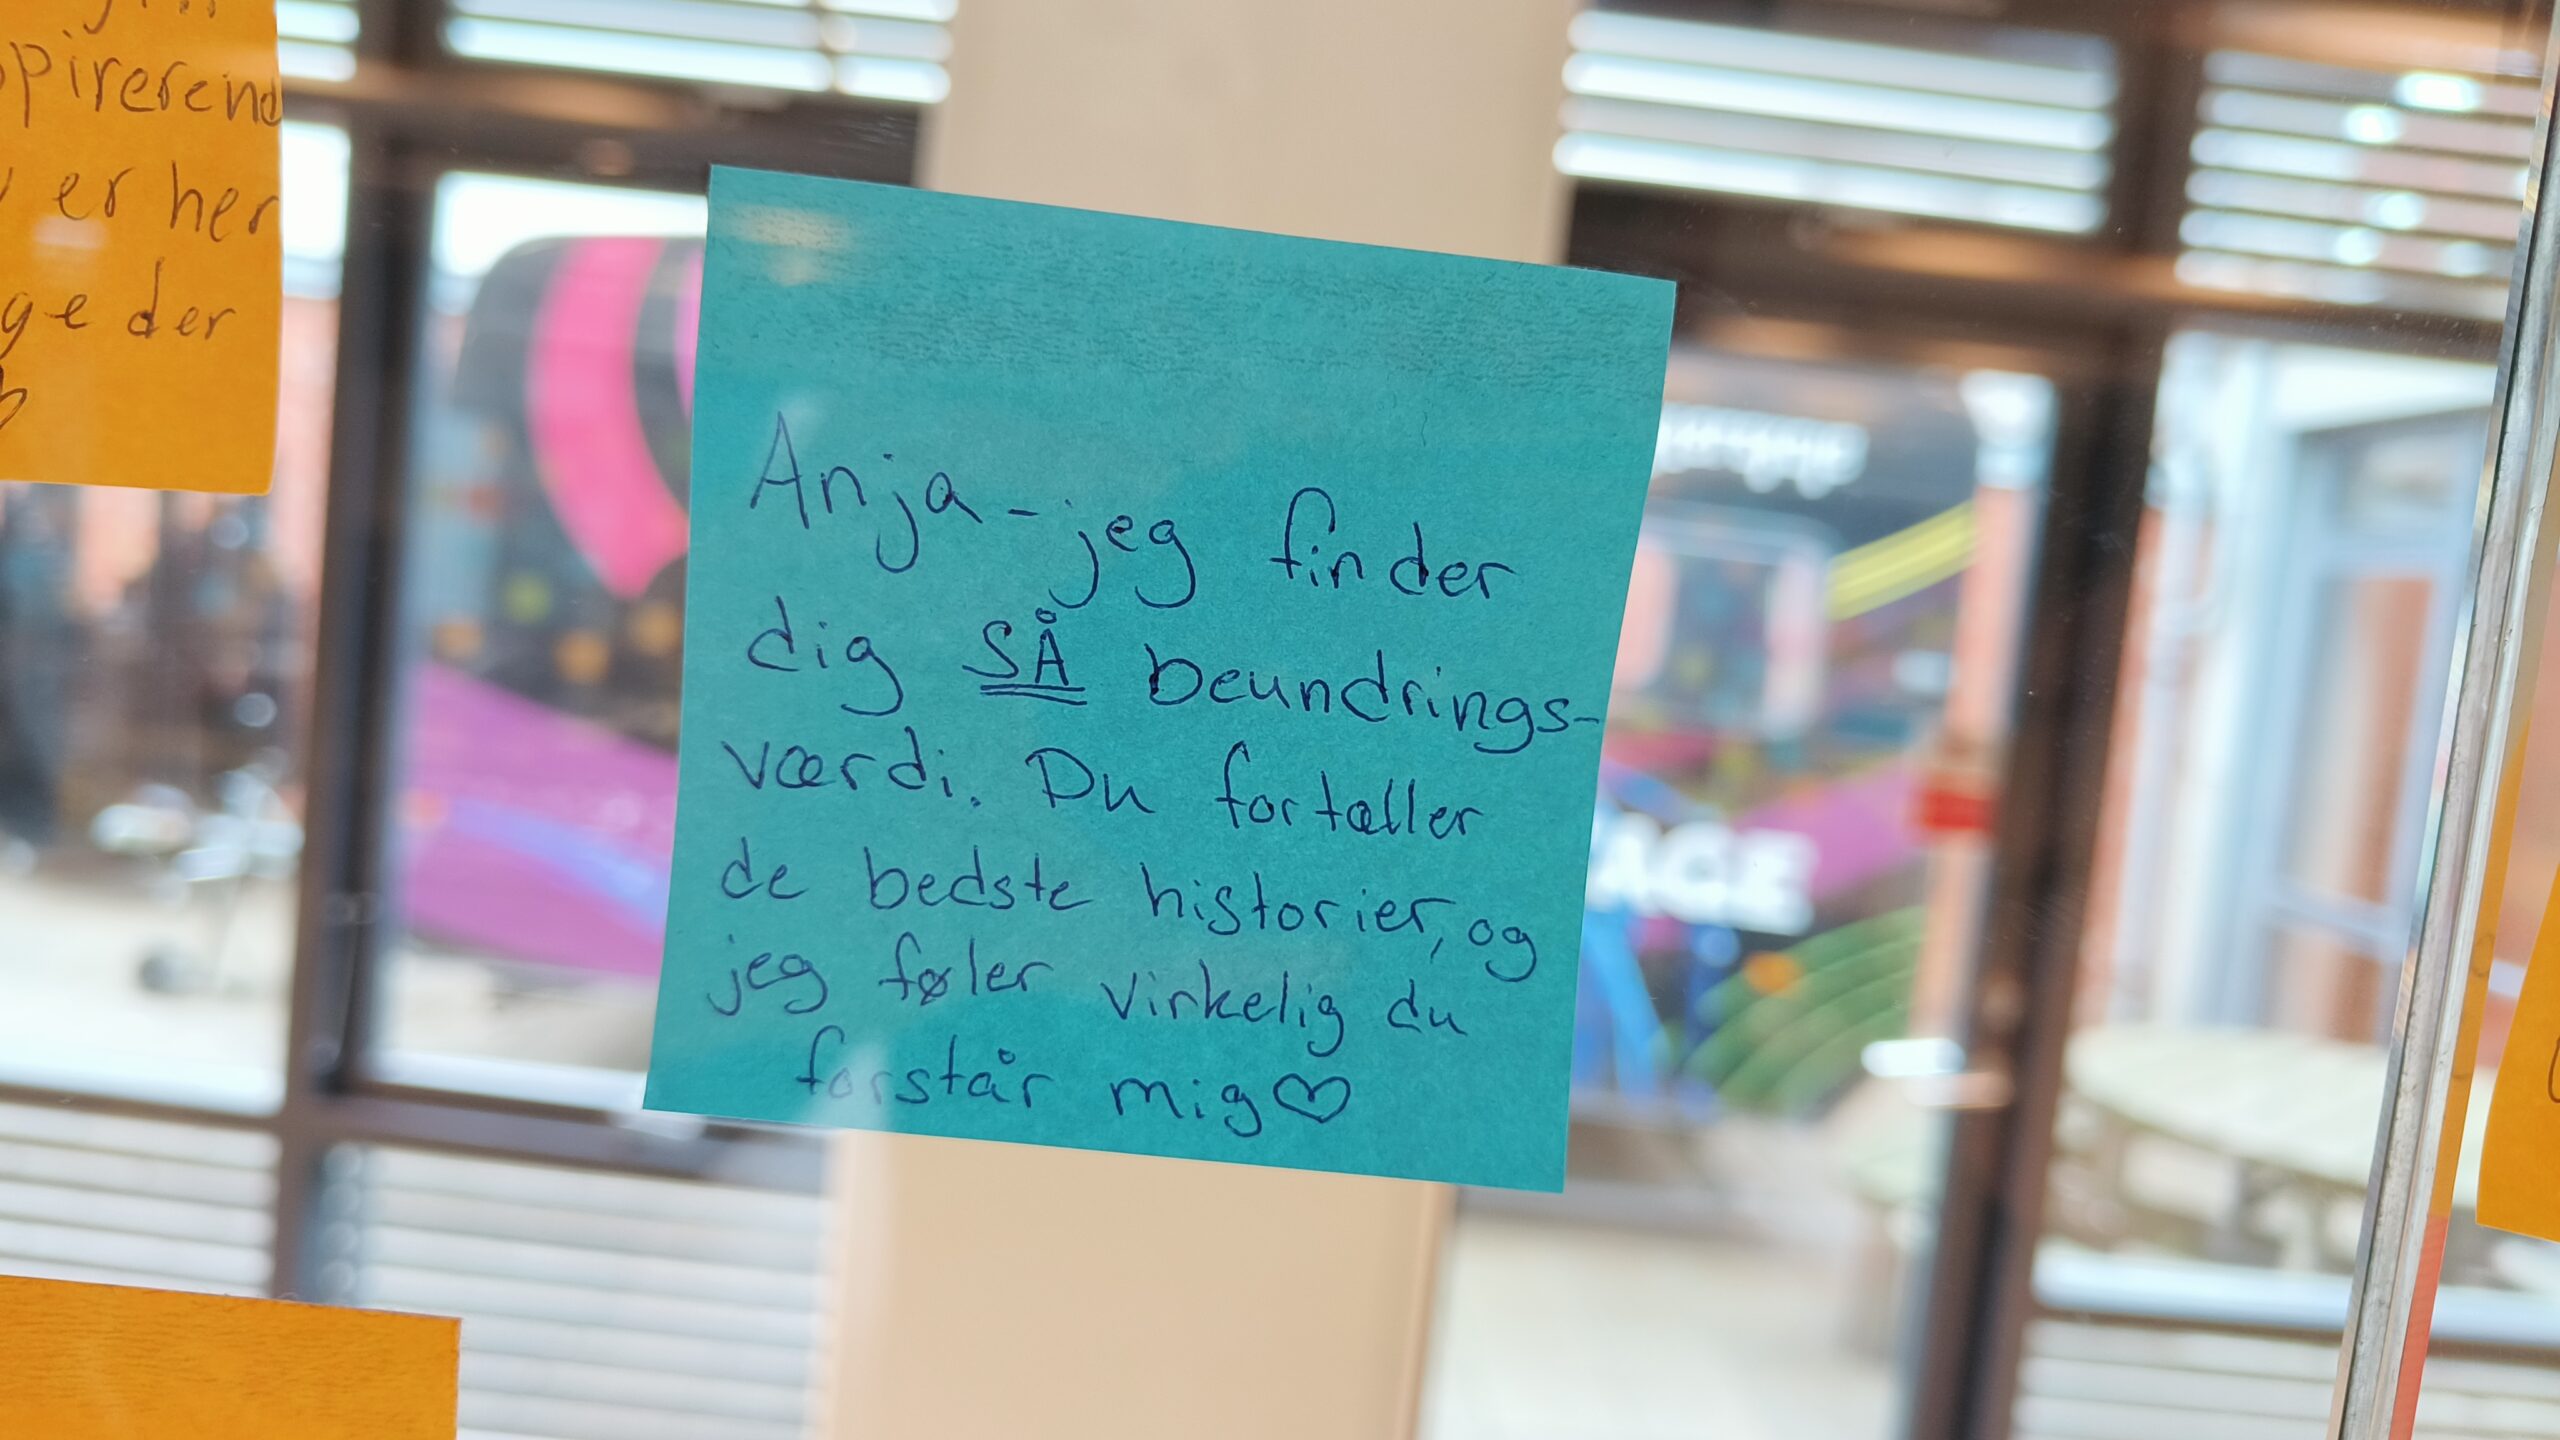 er her
ge der
Anja - jeg finder
dig SÅ beundrings-
værdi. Du fortæller
de bedste historier, og
jeg føler virkelig du
forstår mig ♡
AGE